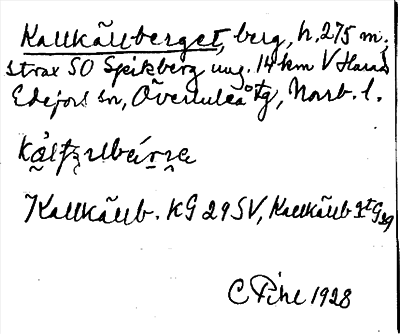 Kallkällberget, berg, h. 275 m,
strax SO Spikberg ung. 14 km V Harads
Edefors sn, Överluleå tg, Norrb. l.
Kallkällb. KG 29 SV, Kallkällb
C Pihl 1928